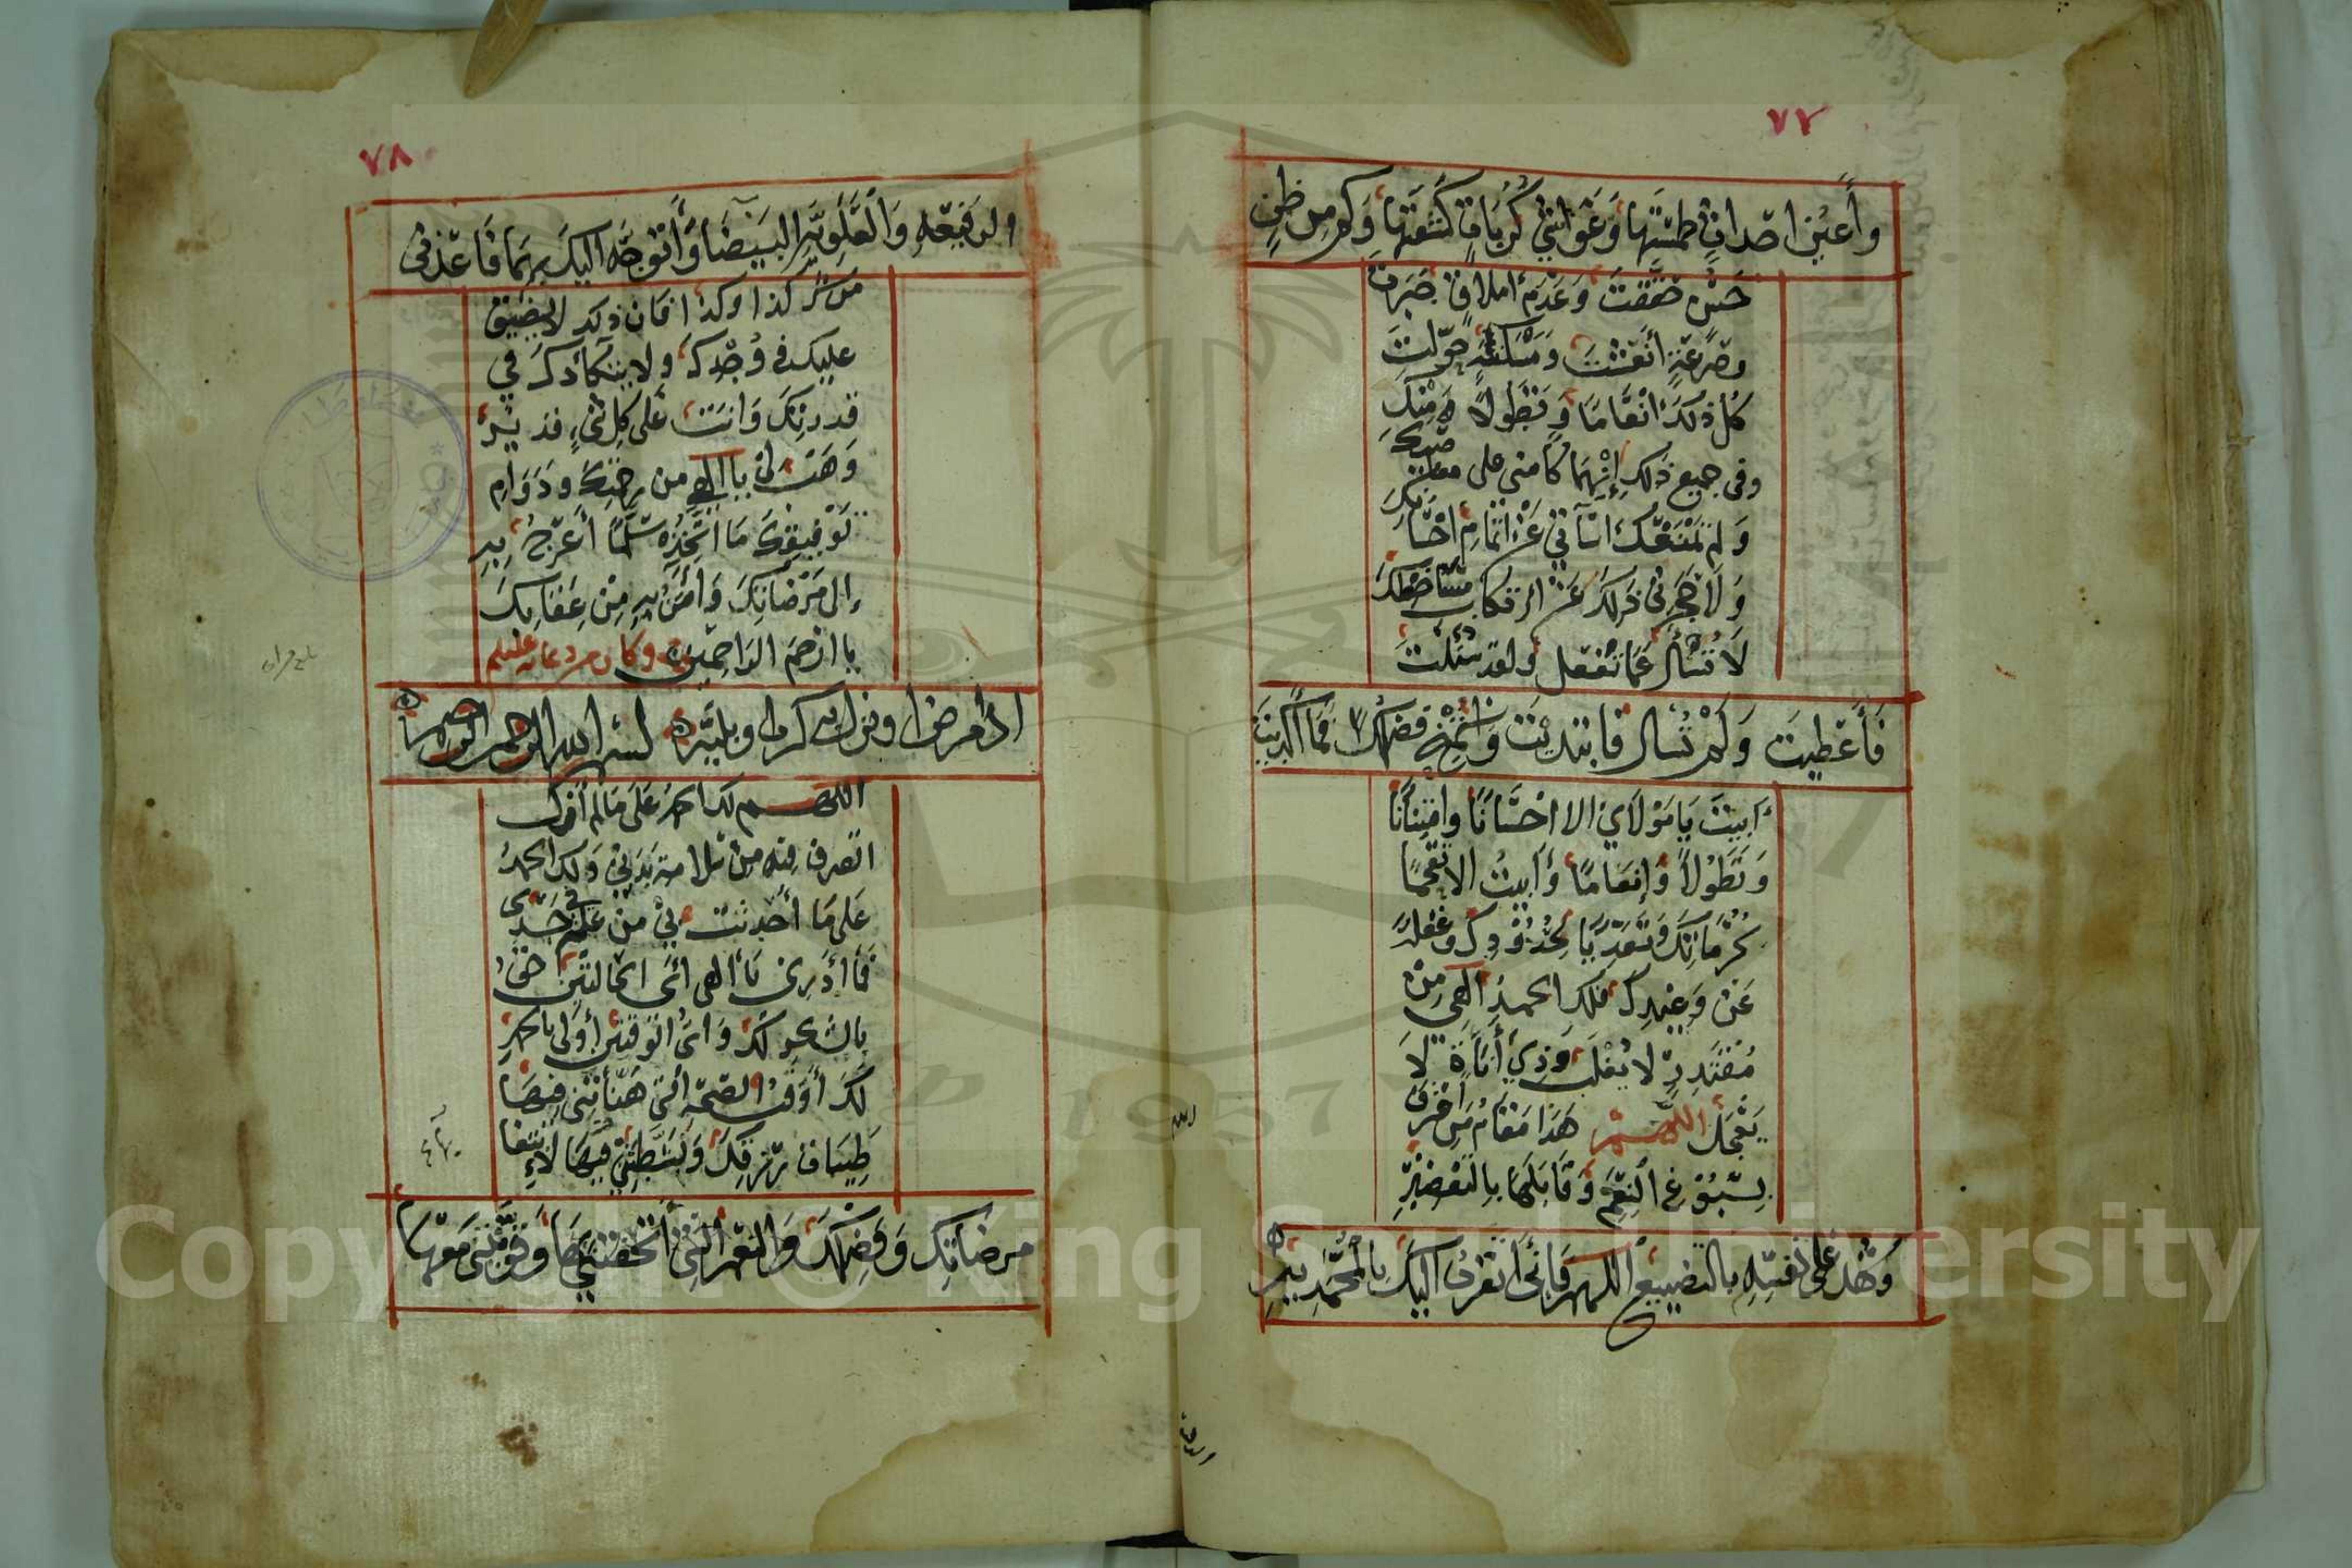 ٧٧
وأعين احداث طمستها وغواشي كربات كشفتها وكم من ظن
حسن حققت وعدم املاق جبرت
وصرعة أنعشت ومسكنة حولت
كل ذلك انعاما وتطولا منك
وفي جميع ذلك إنهما كا مني على معاصيك
ولم تمنعك اسآتي عن اتمام احسانك
ولا حجرني ذلك عن ارتكاب مساخطك
لا تسأل عما تفعل ولقد سئلت
فأعطيت ولم تسأل فابتديت واستميح فضلك فما أكديت
أبيت يا مولاي الا احسانا وامتنانا
وتطولا وإنعاما وأبيت الا تقحما
لحرماتك وتعديا لحدودك وغفلة
عن وعيدك فلك الحمد الهي من
مقتدر لا يغلب وذي أناة لا
يعجل اللهم هذا مقام من اعترف
بسبوغ النعم وقابلها بالتقصير
وشهد على نفسه بالتضييع اللهم فإني أتقرب اليك بالمحمدية
الرفيعة
٧٨
الرفيعة والعلوية البيضا وأتوجه اليك بهما فاعذني
من شر كذا وكذا فان ذلك لا يضيق
عليك في وجدك ولا يتكأدك في
قدرتك وانت على كل شيء قدير
وهب لي يا الهي من رحمتك ودوام
توفيقك ما اتخذه سلما أعرج به
إلى مرضاتك وأمن به من عقابك
يا ارحم الراحمين وكان من دعائه عليه السلم
اذا مرض او نزل به كرب او بلية بسم الله الرحمن الرحيم
اللهم لك الحمد على ما لم أزل
اتصرف فيه من سلامة بدني ولك الحمد
على ما أحدثت بي من علة في جسدي
فما أدري يا الهي أي الحالتين احق
بالشكر لك وأي الوقتين أولى بالحمد
لك أوقت الصحة التي هنأتني فيها
طيبات رزقك ونشطتني فيها لابتغا
مرضاتك وفضلك والنعم التي أتحفتني بها وقويتني معها
Copyright © King Saud University
1957